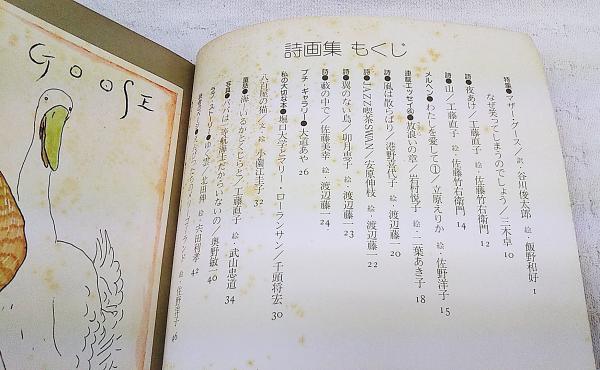 GOOSE
詩画集 もくじ
特集●マザー・グース／訳・谷川俊太郎 絵・飯野和好 1
なぜ笑ってしまうのでしょう／三木卓 10
詩●夜あけ／工藤直子 絵・佐藤竹右衛門 12
詩●山／工藤直子 絵・佐藤竹右衛門 14
メルヘン●わたしを愛して①／立原えりか 絵・佐野洋子 15
連載エッセイ●放浪いの章／岩村悦子 絵・二葉あき子 18
詩●風は散らばり／港野喜代子 絵・渡辺藤一 20
詩●JAZZ喫茶SWAN／安原伸枝 絵・渡辺藤一 22
詩●翼のない鳥／卯月雪子 絵・渡辺藤一 23
詩●藪の中で／佐藤美幸 絵・渡辺藤一 24
プチ・ギャラリー●大道あや 26
私の大切な本●堀口大学とマリー・ローランサン／千頭将宏 30
八百屋の猫／文・絵・小薗江圭子 32
童話●海にいるかとくじらと／工藤直子 絵・武山忠道 34
写真●パパは／奥野敏一 40
絵・六田利孝 42
絵・佐野洋子 46